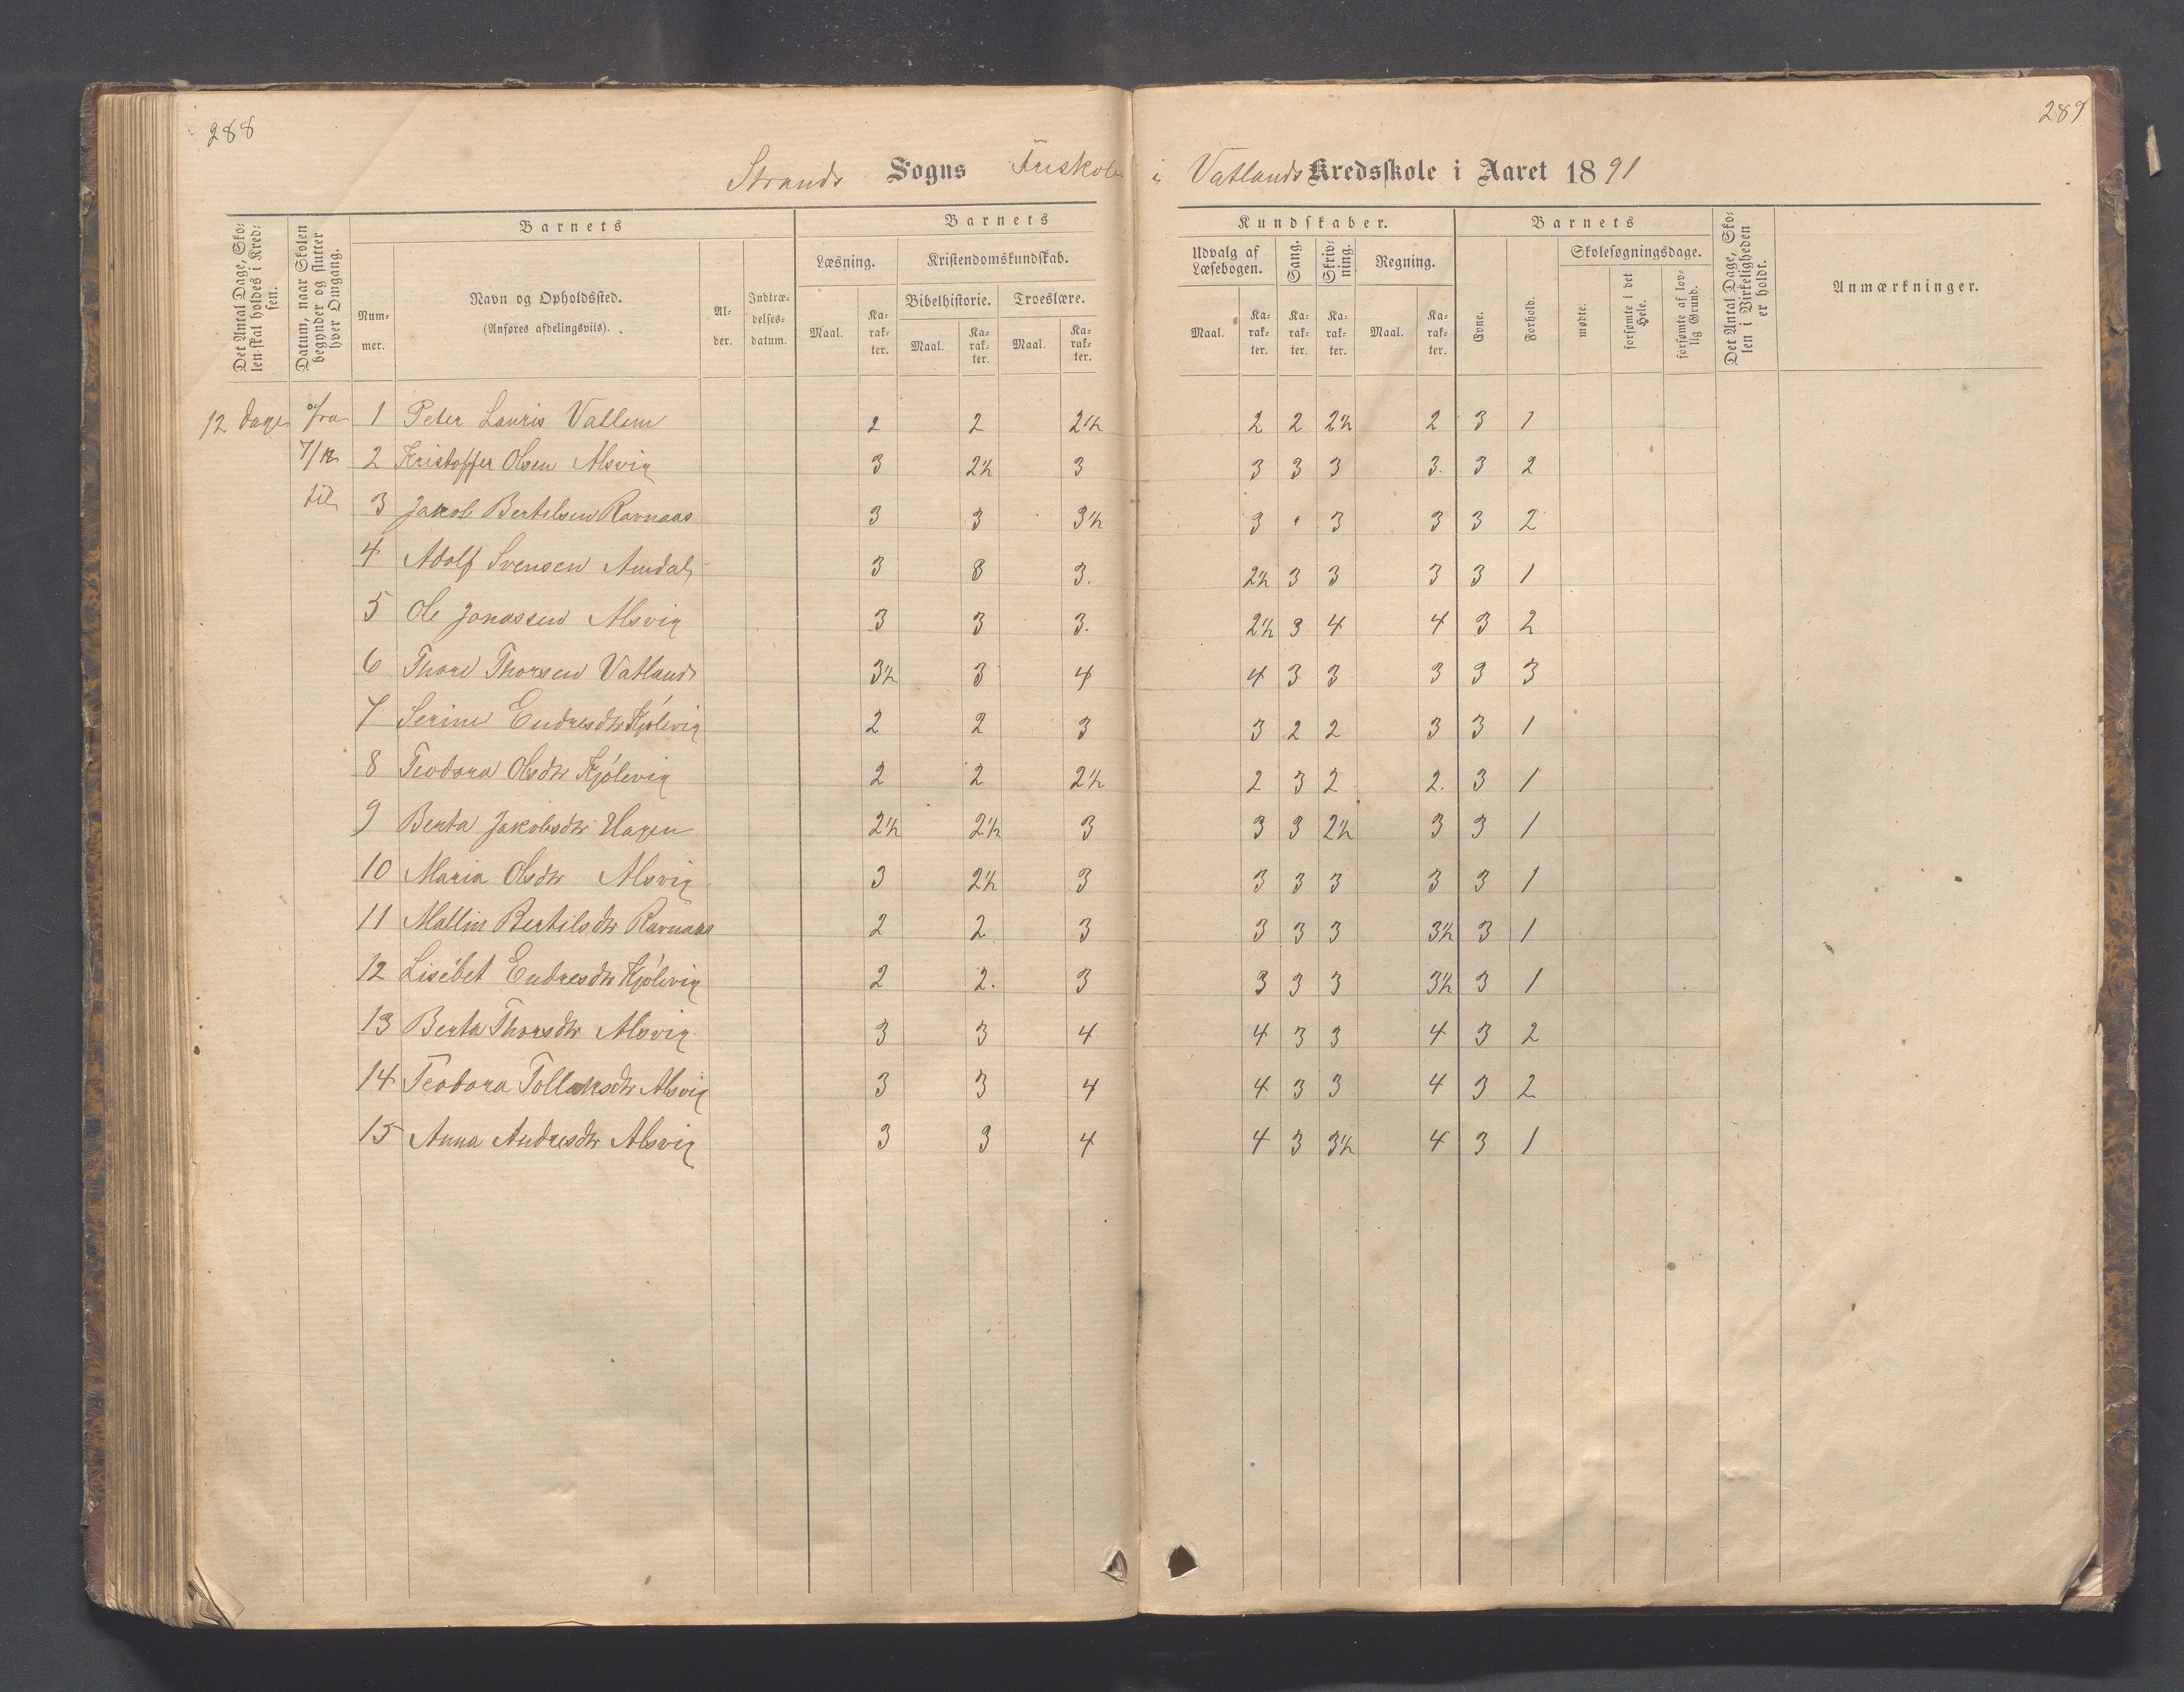 288
289
Strands Sogns Friskolen i Vatlands Kredsskole i Aaret 1891
Det Antal Dage, Skolen skal holdes i Kredsen.
Datum, naar Skolen begynder og slutter hver Omgang.
Barnets
Nummer.
Navn og Opholdssted.
(Anføres afdelingsviis).
Alder.
Indtrædelsesdatum.
Barnets Kundskaber.
Læsning.
Maal. Karakter.
Kristendomskundskab.
Bibelhistorie. Troeslære.
Maal. Karakter. Maal. Karakter.
Udvalg af Læsebogen.
Maal. Karakter.
Sang. Karakter.
Skrivning. Karakter.
Regning.
Maal. Karakter.
Barnets
Evne. Forhold.
Skolesøgningsdage.
mødte. forsømte i det Hele. forsømte af lovlig Grund.
Det Antal Dage, Skolen i Virkeligheden er holdt.
Anmærkninger.
12 dage fra 1 Peter Lauris Vallem 2 2 2½ 2 2 2½ 2 3 1
7/12 2 Kristoffer Olsen Alsvig 3 2½ 3 3 3 3 3. 3 2
til 3 Jakob Bertilsen Ravnaas 3 3 3½ 3 3 3 3 2
4 Adolf Svensen Amdal 3 3 3. 2½ 3 3 3 3 1
5 Ole Jonassen Alsvig 3 3 3. 2½ 3 4 4 3 2
6 Thore Thorsen Vatland 3½ 3 4 4 3 3 3 3 3
7 Serine Endresdtr Kjölevig 2 2 3 3 2 2 3 3 1
8 Teodora Olsdtr Kjölevig 2 2 2½ 2 3 2 2. 3 1
9 Berta Jakobsdtr Hagen 2½ 2½ 3 3 3 2½ 3 3 1
10 Maria Olsdtr Alsvig 3 2½ 3 3 3 3 3 3 1
11 Mallin Bertilsdtr Ravnaas 2 2 3 3 3 3 3½ 3 1
12 Lisebet Endresdtr Kjölevig 2 2. 3 3 3 3 3½ 3 1
13 Berta Thorsdtr Alsvig 3 3 4 4 3 3 4 3 2
14 Teodora Tollaksdtr Alsvig 3 3 4 4 3 3 4 3 2
15 Anna Andresdtr Alsvig 3 3 4 4 3 3½ 4 3 1